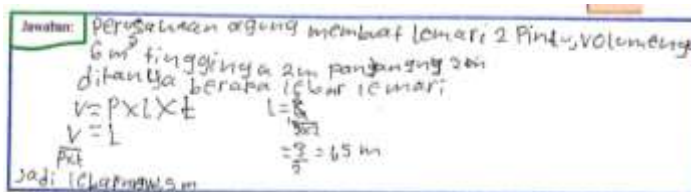 Jawaban: perusahaan agung membuat lemari 2 pintu, volumenya
6 m³ tingginya 2m panjangnya 2m
ditanya berapa lebar lemari
V = P x l x t
V/pxt = l
l = 6/2x2
= 3/2 = 1,5 m
Jadi lebarnya 1,5 m